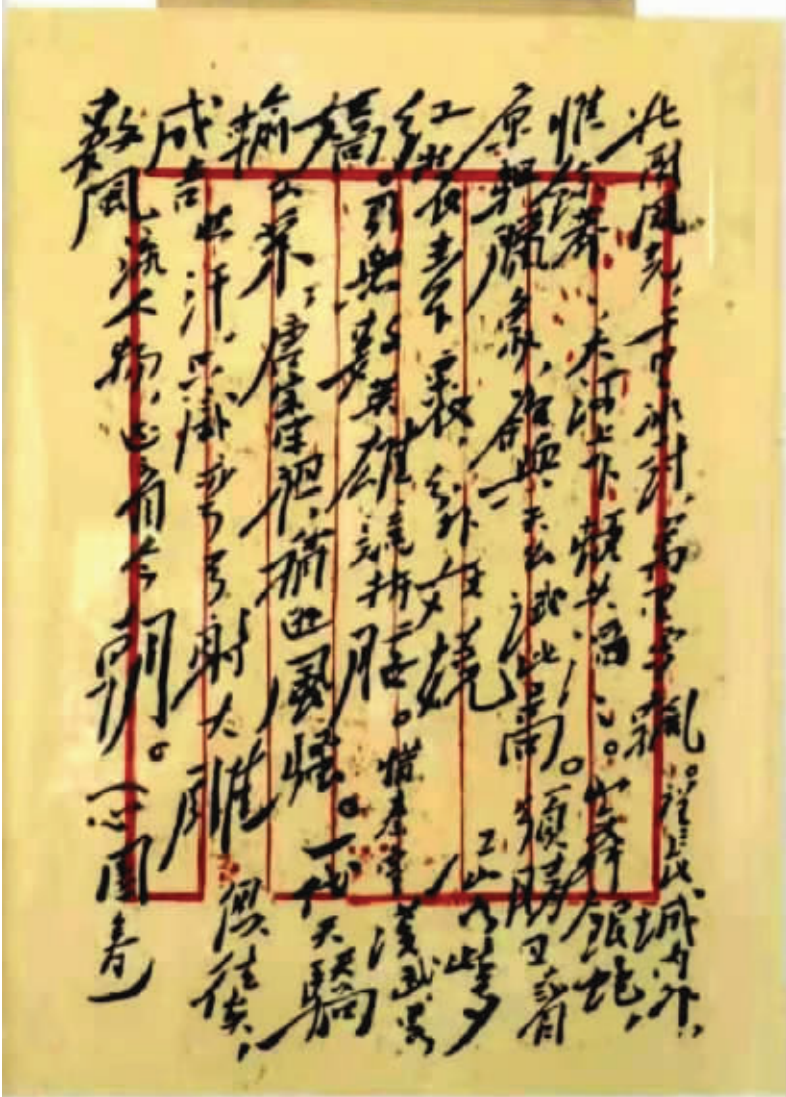 北國風光，千里冰封，萬里雪飄。望長城内外，
惟餘莽、大河上下頓失滔、。山舞銀蛇，
原馳臘象，欲與天公試比高。須晴日看
红裝素裹，分外妖嬈 江山如此多
嬌。引無數英雄競折腰。惜秦皇漢武畧
輸文采，唐宗宋祖，稍遜風騷。一代天驕
成吉思汗，只識彎弓射大雕 俱往矣，
數風流人物，还看今朝。（沁園春）